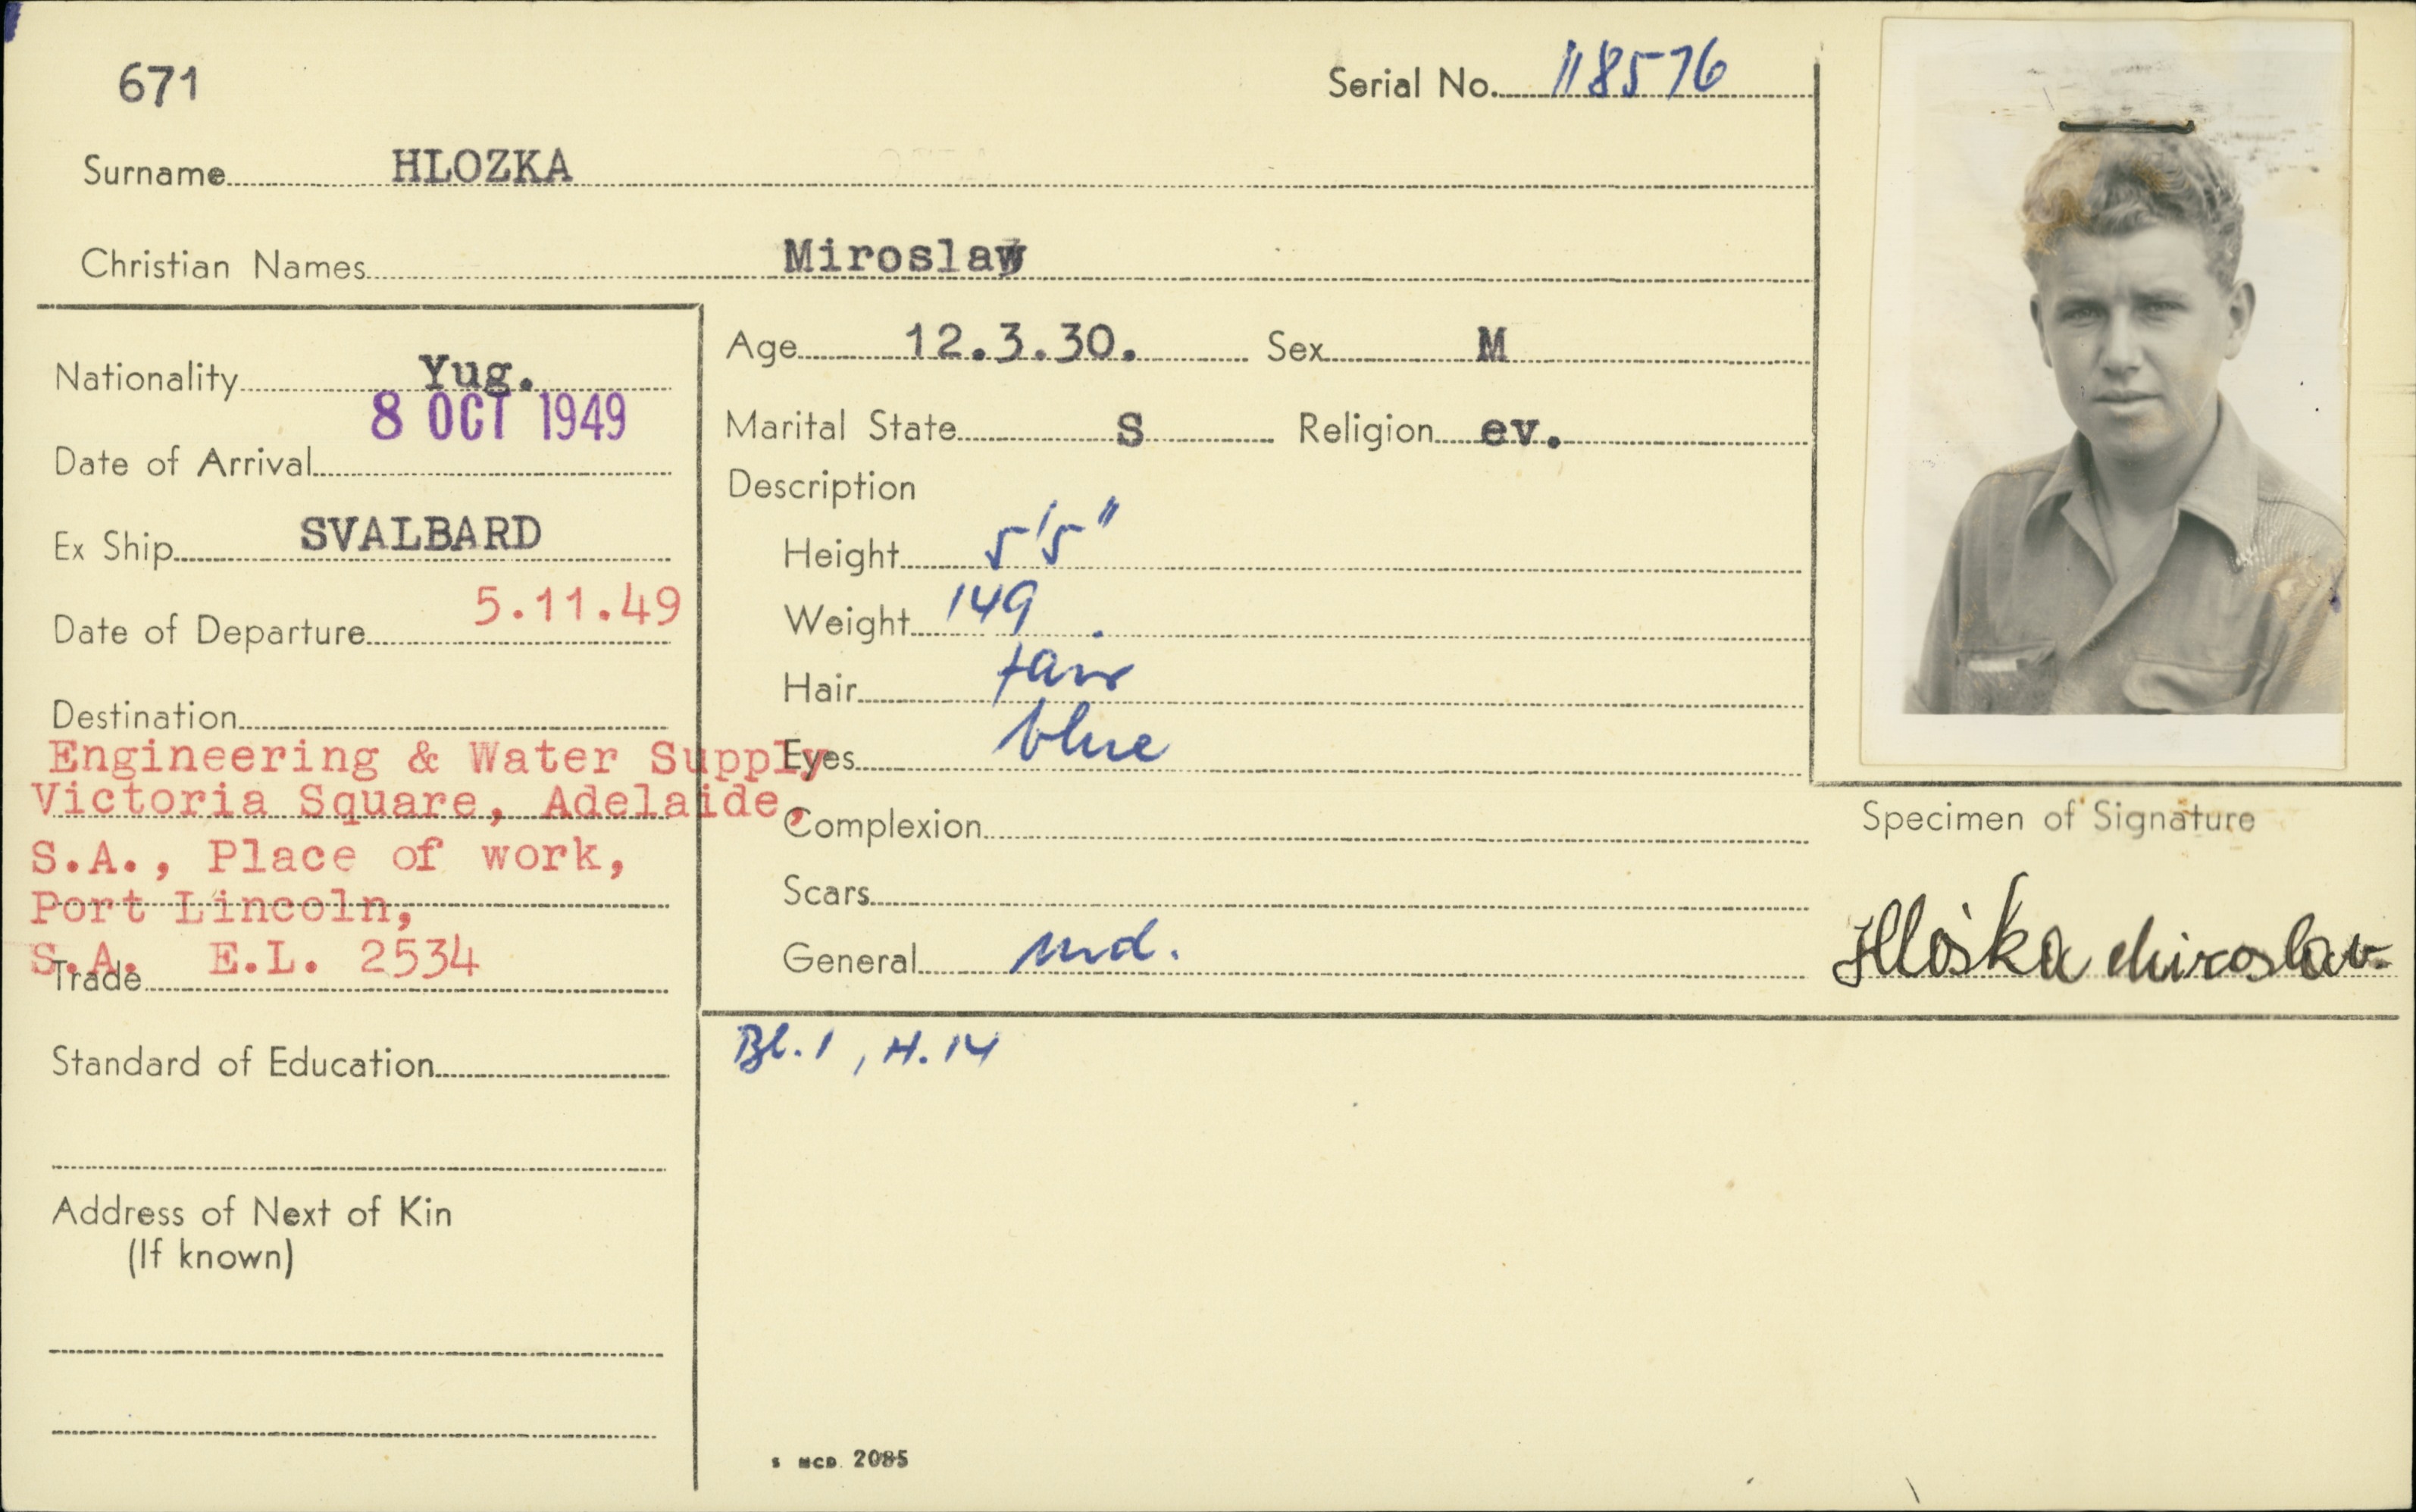 671
Serial No. 118576
Surname HLOZKA
Christian Names Miroslaw
Nationality Yug.
Date of Arrival 8 OCT 1949
Ex Ship SVALBARD
Date of Departure 5.11.49
Destination
Engineering & Water Supply
Victoria Square, Adelaide,
S.A., Place of work,
Port Lincoln,
S.A. E.L. 2534
Trade
Standard of Education
Address of Next of Kin
(If known)
Age 12.3.30. Sex M
Marital State S Religion ev.
Description
Height 5'5"
Weight 149
Hair fair
Eyes blue
Complexion
Scars
General md.
Bl.1, H.14
S MCD 2085
Specimen of Signature
Hloška Miroslav